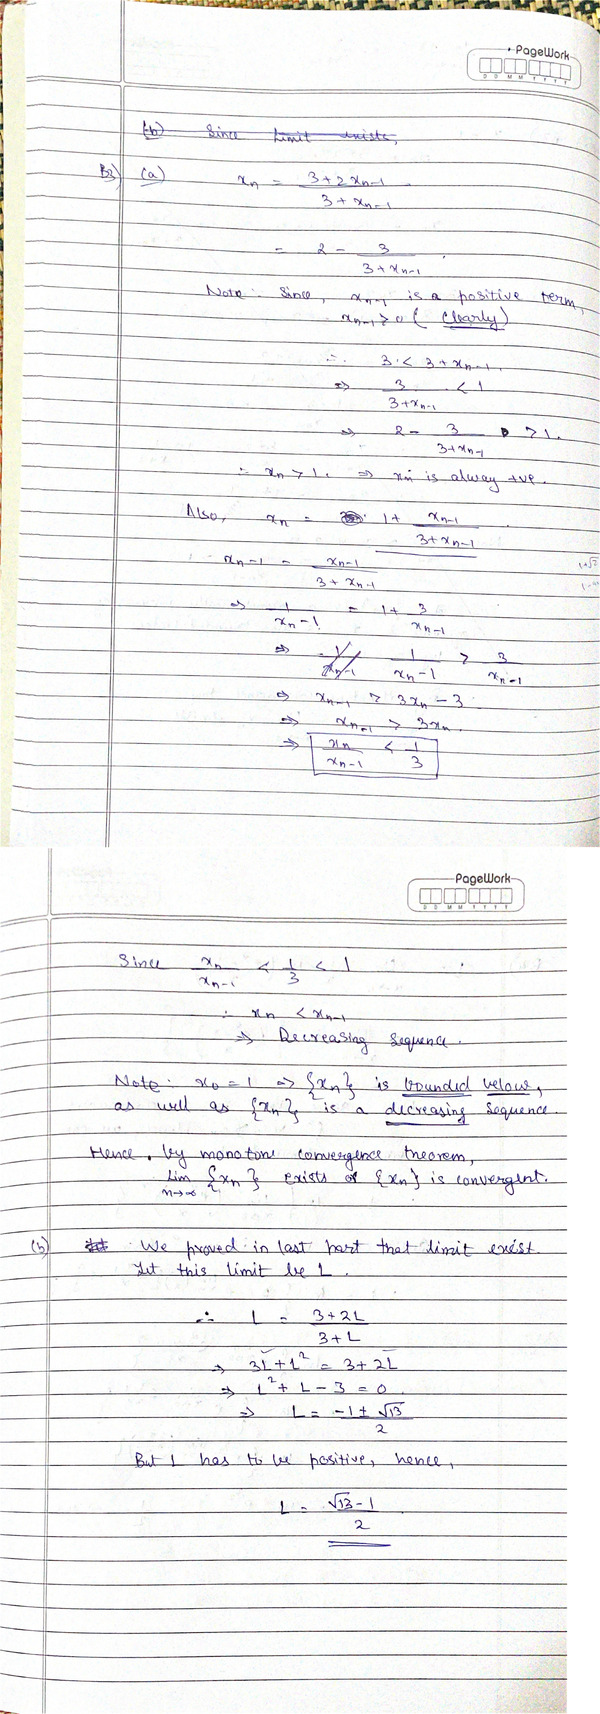 PageWork
D D M M Y Y Y Y
(b) Since Limit exists,
B3) (a) xₙ = (3+2xₙ₋₁)/(3+xₙ₋₁)
= 2 - 3/(3+xₙ₋₁)
Note: Since, xₙ₋₁ is a positive term,
xₙ₋₁ > 0 (Clearly)
∴ 3 < 3+xₙ₋₁
⇒ 3/(3+xₙ₋₁) < 1
⇒ 2 - 3/(3+xₙ₋₁) > 1.
∴ xₙ > 1. ⇒ xₙ is alway +ve.
Also, xₙ = 1 + xₙ₋₁/(3+xₙ₋₁)
xₙ-1 = xₙ₋₁/(3+xₙ₋₁)
⇒ 1/(xₙ-1) = 1 + 3/xₙ₋₁
⇒ 1/(xₙ-1) > 3/xₙ₋₁
⇒ xₙ₋₁ > 3xₙ - 3
⇒ xₙ₋₁ > 3xₙ
⇒ xₙ/xₙ₋₁ < 1/3
PageWork
D D M M Y Y Y Y
Since xₙ/xₙ₋₁ < 1/3 < 1
∴ xₙ < xₙ₋₁
⇒ Decreasing sequence.
Note: x₀ = 1 ⇒ {xₙ} is bounded below,
as well as {xₙ} is a decreasing sequence.
Hence, by monotone convergence theorem,
Lim n→∞ {xₙ} exists or {xₙ} is convergent.
(b) We proved in last part that limit exist.
Let this limit be L.
∴ L = (3+2L)/(3+L)
⇒ 3L+L² = 3+2L
⇒ L² + L - 3 = 0
⇒ L = (-1 ± √13)/2
But L has to be positive, hence,
L = (√13 - 1)/2